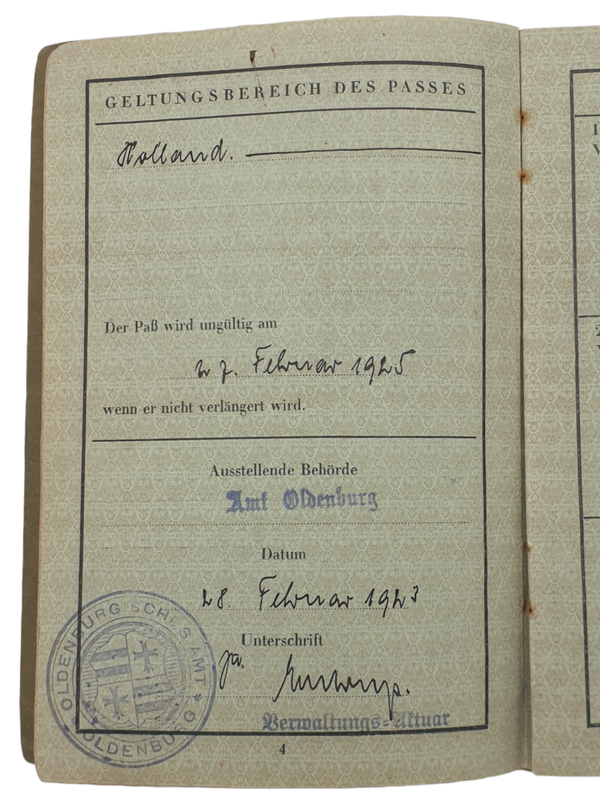 GELTUNGSBEREICH DES PASSES
Holland.
Der Paß wird ungültig am
27. Februar 1925
wenn er nicht verlängert wird.
Ausstellende Behörde
Amt Oldenburg
Datum
28. Februar 1923
Unterschrift
Verwaltungs-Aktuar
OLDENBURGISCHES AMT
OLDENBURG
4